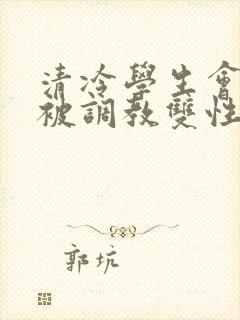 清冷學生會
被調教雙性
郭坑